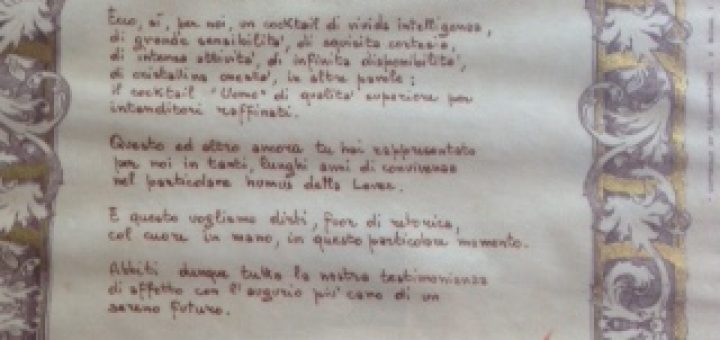 Ecco, sì, per noi, un cocktail di vivida intelligenza,
di grande sensibilità, di squisita cortesia,
di intensa attività, di infinita disponibilità,
di cristallina onestà, in altre parole:
il cocktail "Uomo" di qualità superiore per
intenditori raffinati.
Questo ed altro ancora tu hai rappresentato
per noi in tanti, lunghi anni di convivenza
nel particolare humus della Lever.
E questo vogliamo dirti, fuor di retorica,
col cuore in mano, in questo particolare momento.
Abbiti dunque tutta la nostra testimonianza
di affetto con l'augurio più caro di un
sereno futuro.